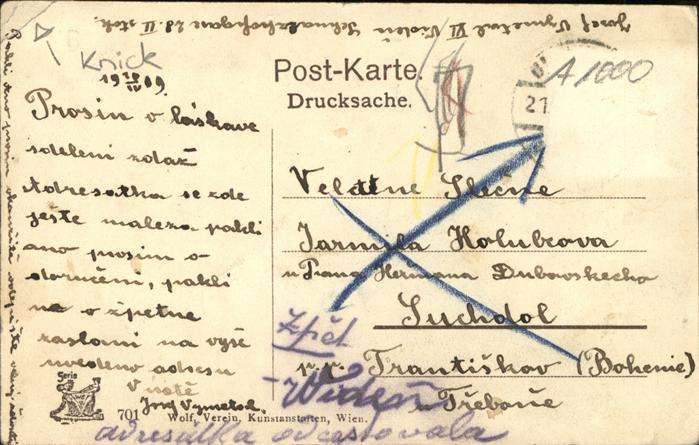 Josef Vymetal VI Wien Schmalzhofgasse 28. II stock
Knick
A 1000
19 20/IV 09.
Post-Karte.
Drucksache.
21
Prosim o laskave
sdeleni zdaž
Adresatka se zde
ješte maleza pakli
ano prosim o
doručeni, pakli
ne o zpetne
zaslani na vyše
uvedeno adresu
V ucte
Josef Vymetal.
Velctene Slečne
Jarmila Holubcova
u Pana Hermana Dubovskecha
Suchdol
Zpět
n. n. Frantiskov (Bohemie)
Wídeň
u Třeboně
Serie
701
Wolf, Verein. Kunstanstalten, Wien.
adresatka odcestovala